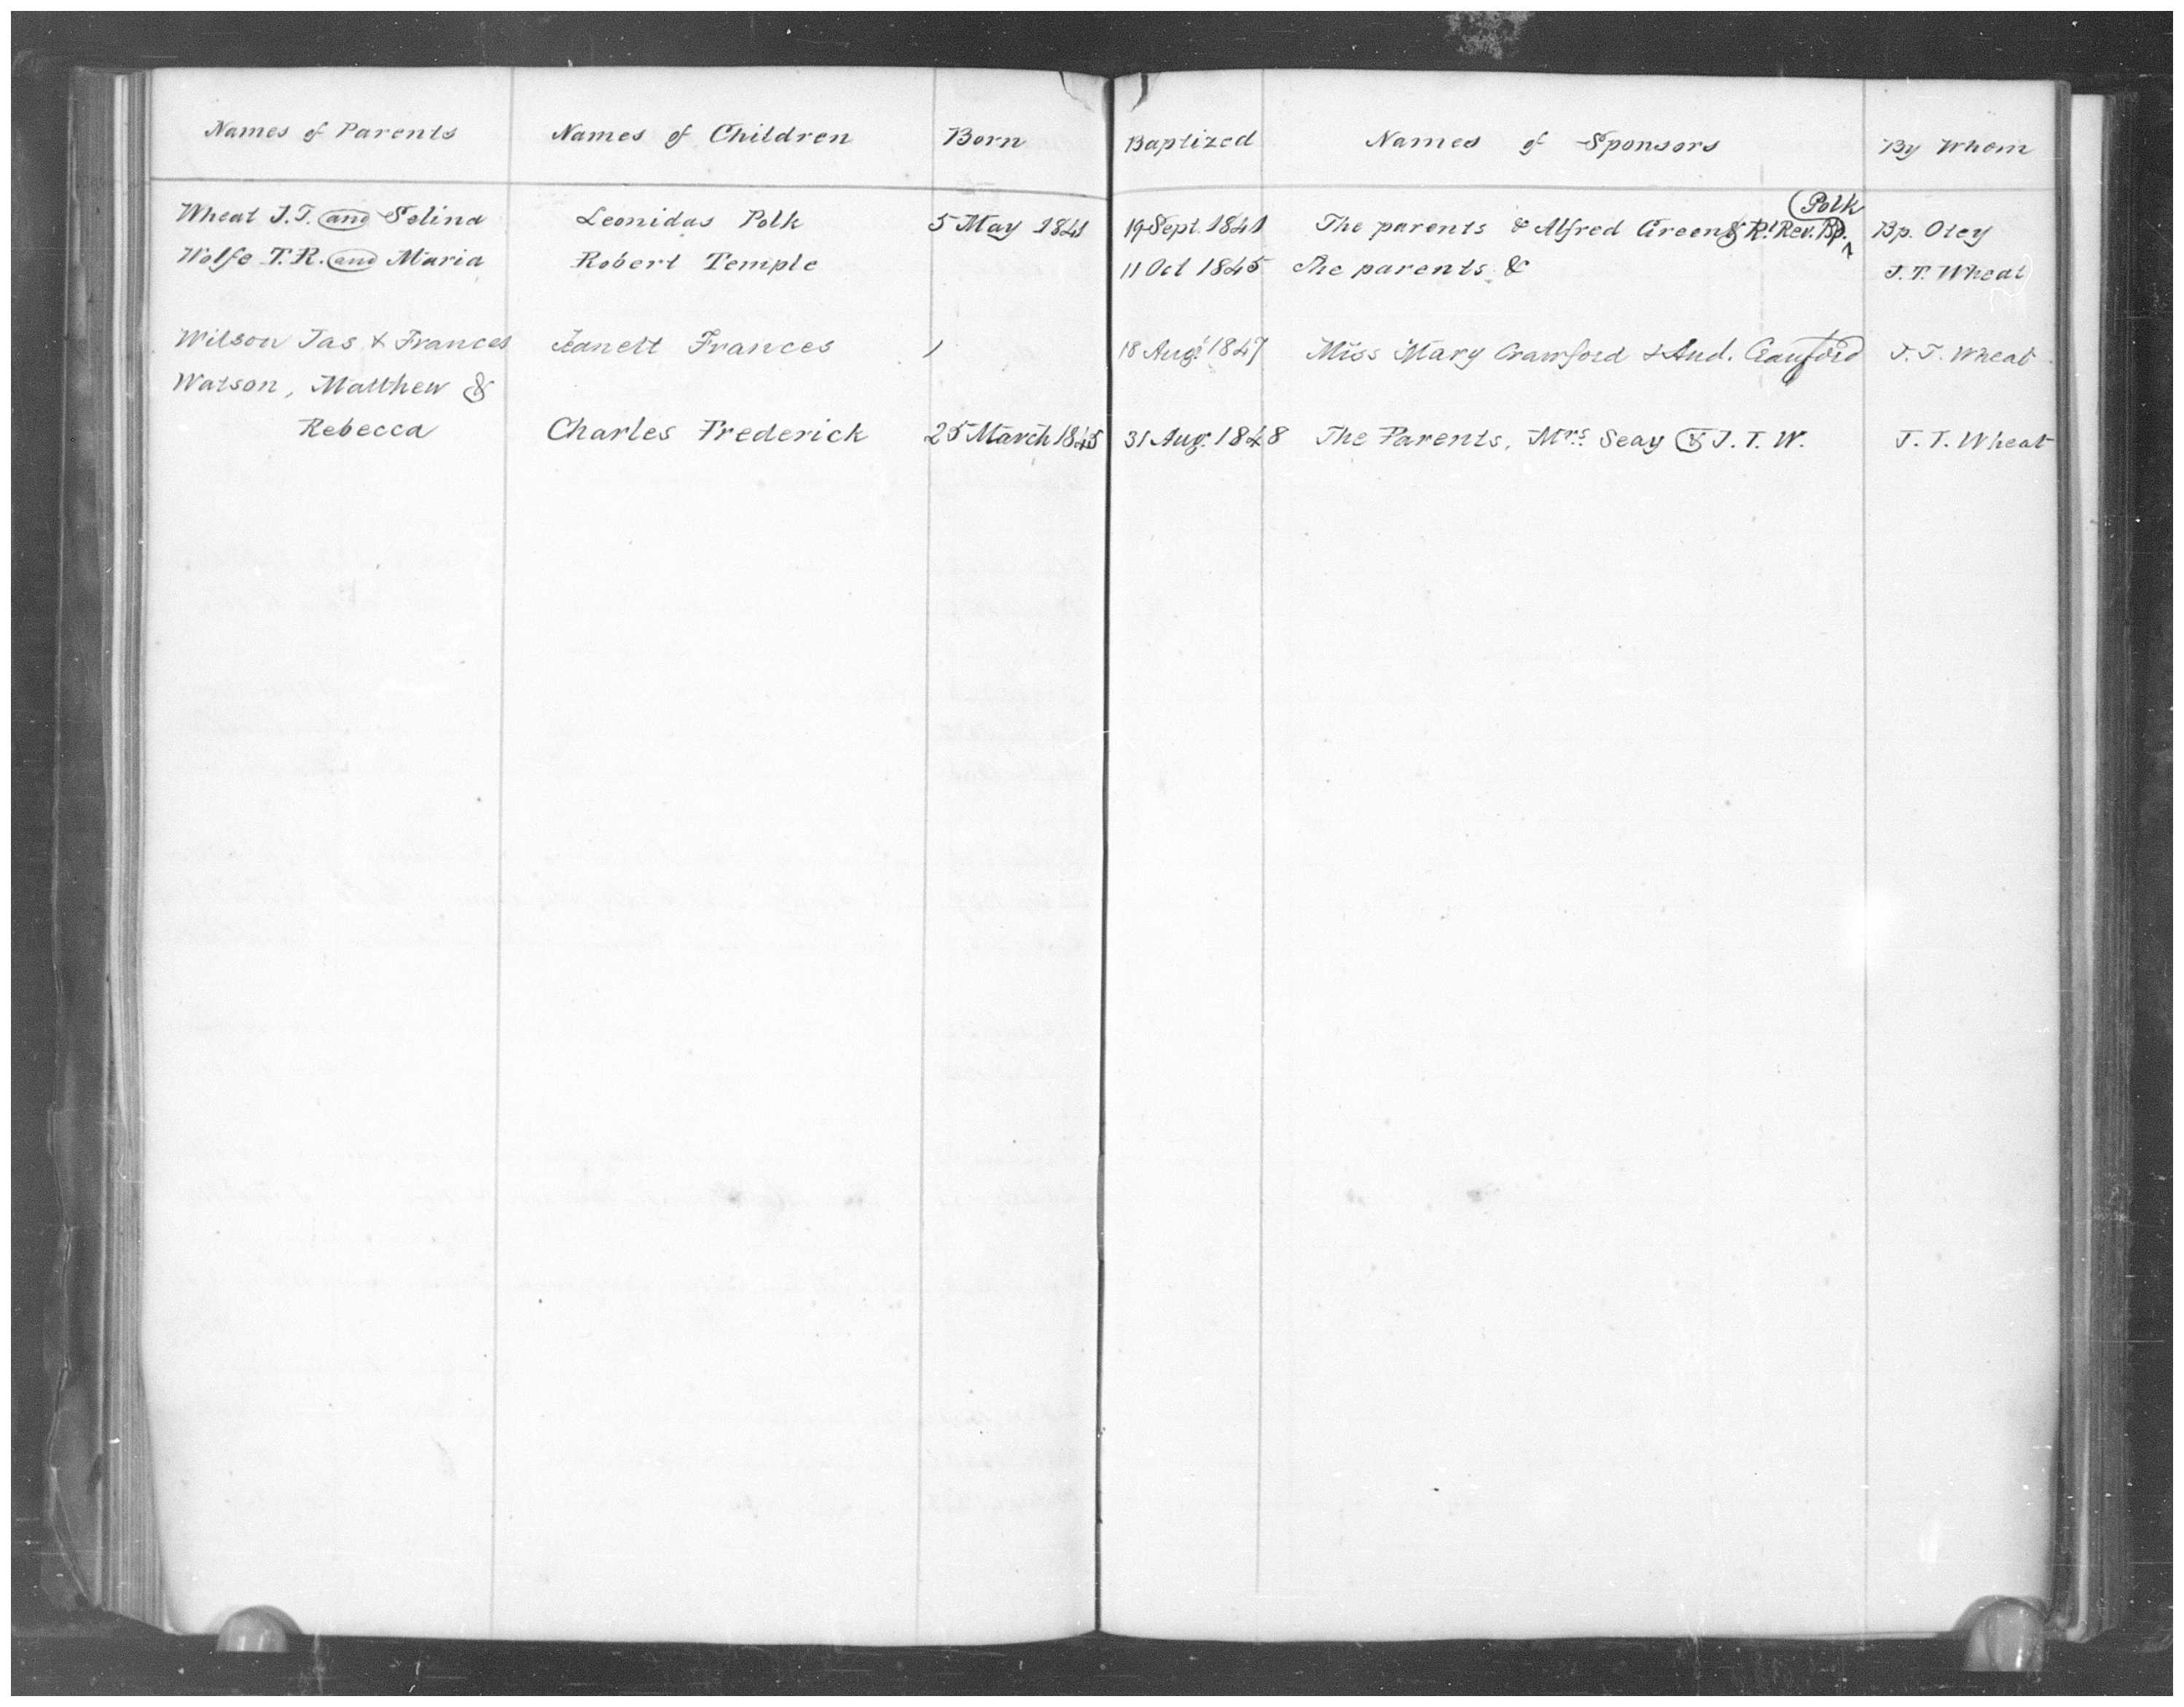 Names of Parents Names of Children Born Baptized Names of Sponsors By Whom
Polk
Wheat J.T. and Selina Leonidas Polk 5 May 1841 19 Sept. 1841 The parents & Alfred Green & Rt Rev. Bp. ^ Bp. Otey
Wolfe T.R. and Maria Robert Temple 11 Oct 1845 The parents & J.T. Wheat
Wilson Jas & Frances Janett Frances 18 Augt 1847 Miss Mary Crawford & And. Crawford J.T. Wheat
Watson, Matthew &
Rebecca Charles Frederick 25 March 1845 31 Aug. 1848 The Parents, Mrs Seay & J.T.W. J.T. Wheat